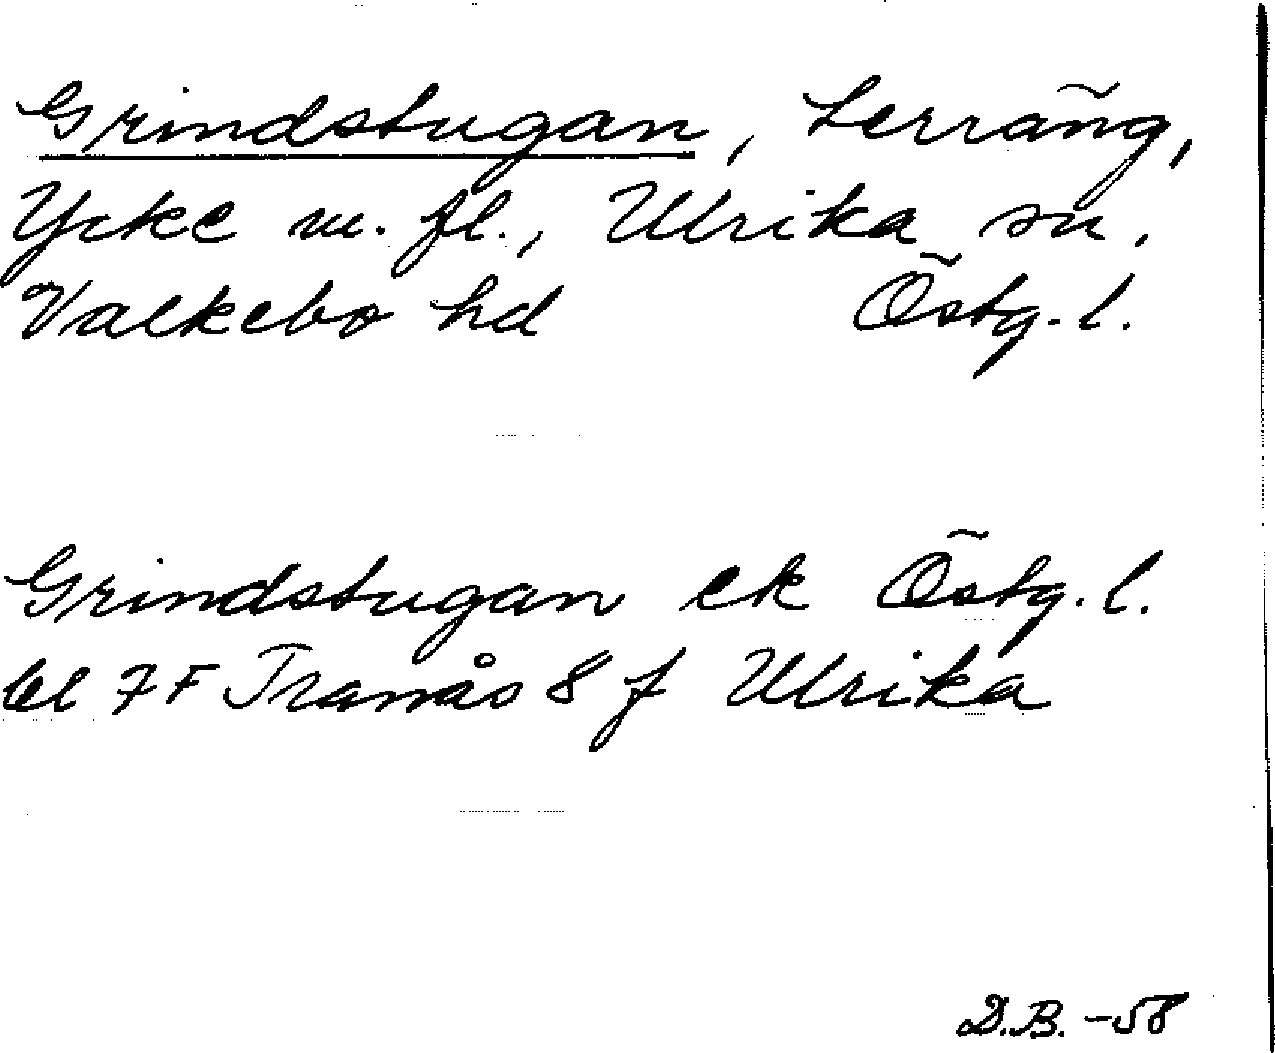 Grindstugan, Lerräng,
Ycke m. fl., Ulrika sn,
Valkebo hd Östg. l.
Grindstugan ek Östg. l.
bl 7F Tranås 8 f Ulrika
D.B. -58